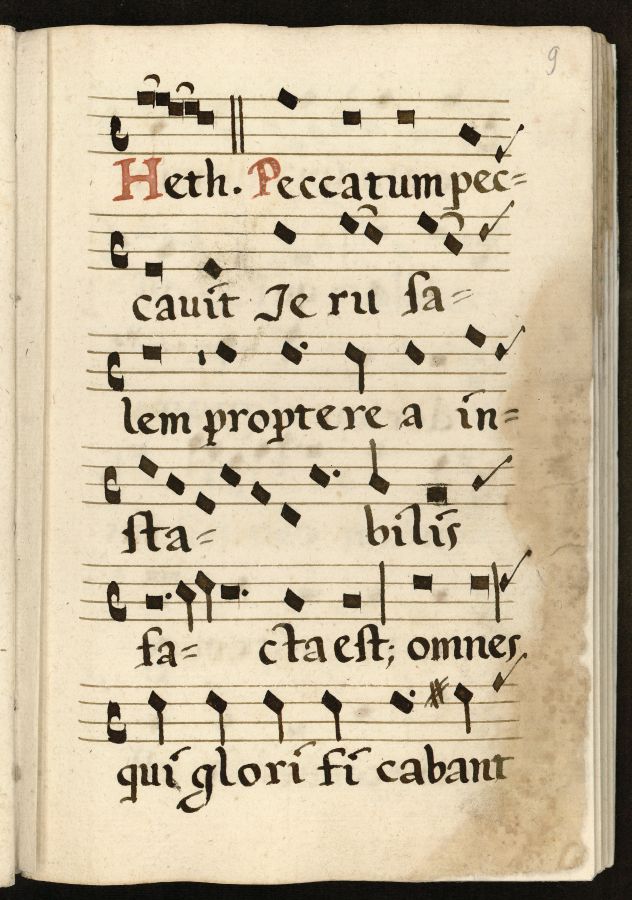 9
Heth. Peccatum pec=
cavit Je ru sa=
lem proptere a in=
sta= bilis
fa= cta est; omnes
qui glori fi cabant